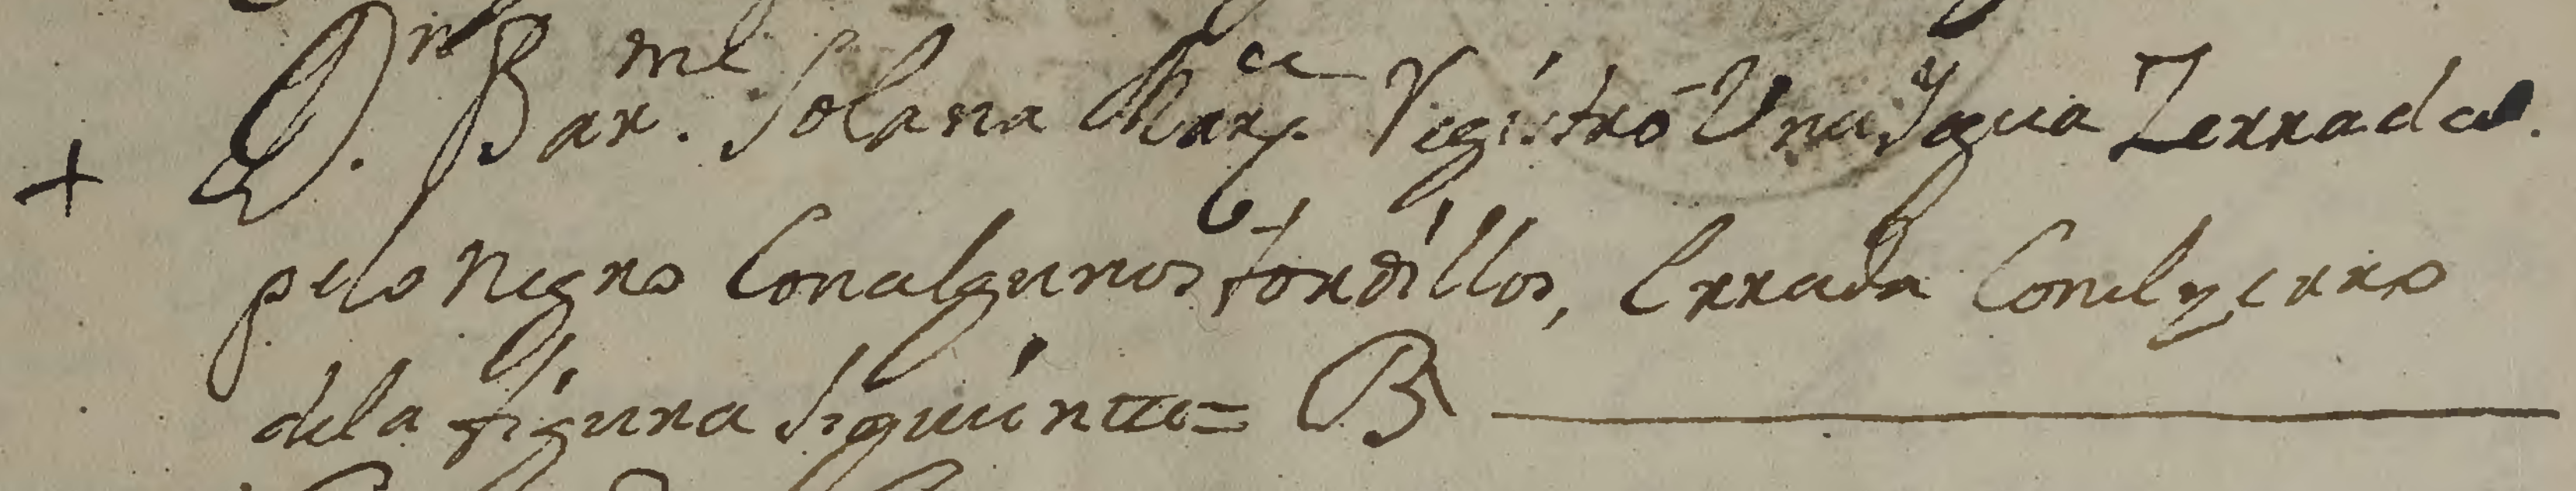 + D.n Bar.me Solana Marz.ce Registró Una Yegua Zerrada.
pelo Negro Con algunos tordillos, Errada Con el yerro
de la figura siguiente = B